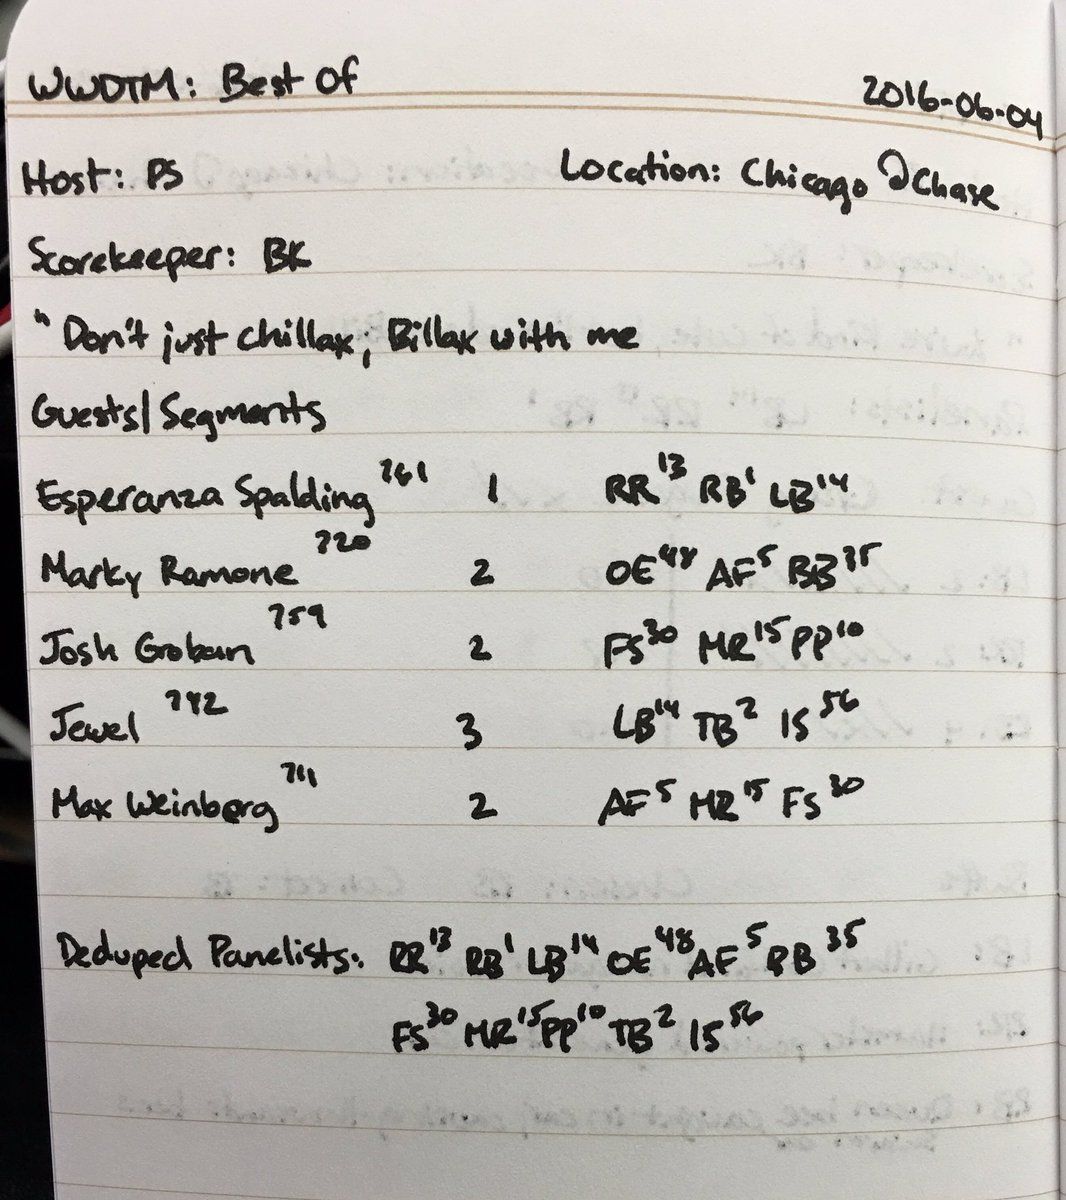 WWDTM: Best Of 2016-06-04
Host: PS Location: Chicago @Chase
Scorekeeper: BK
"Don't just chillax; Billax with me
Guests/Segments
Esperanza Spalding 761 1 RR 13 RB 1 LB 14
Marky Ramone 720 2 OE 48 AF 5 BB 35
Josh Groban 759 2 FS 30 MR 15 PP 10
Jewel 742 3 LB 14 TB 2 IS 56
Max Weinberg 711 2 AF 5 MR 15 FS 30
Deduped Panelists: RR 13 RB 1 LB 14 OE 48 AF 5 BB 35
FS 30 MR 15 PP 10 TB 2 IS 56